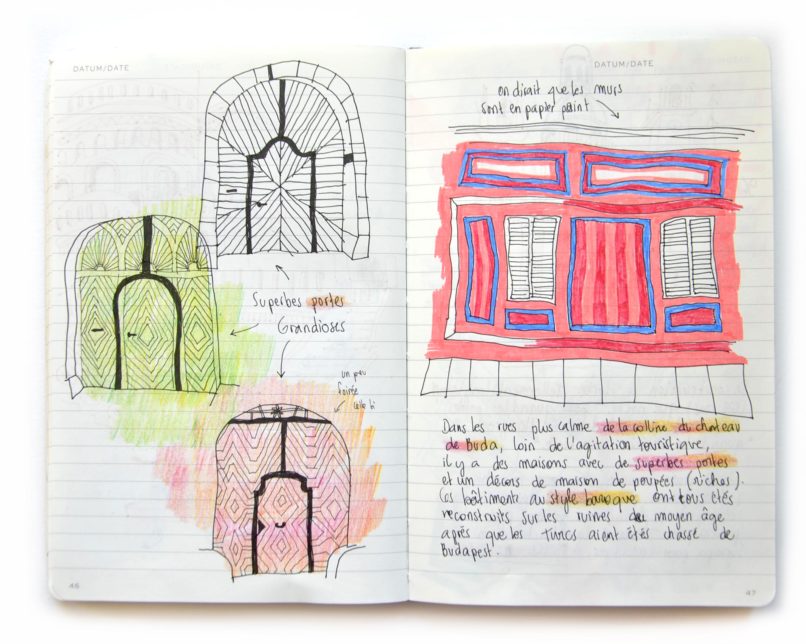 DATUM/DATE
Superbes portes
Grandioses
un peu
foirée
celle ci
46
DATUM/DATE
on dirait que les murs
sont en papier peint
Dans les rues plus calme de la colline du chateau
de Buda, loin de l'agitation touristique,
il y a des maisons avec de superbes portes
et un décors de maison de poupées (riches).
Ces bâtiments au style baroque ont tous étés
reconstruits sur les ruines du moyen âge
après que les Turcs aient étés chassé de
Budapest.
47